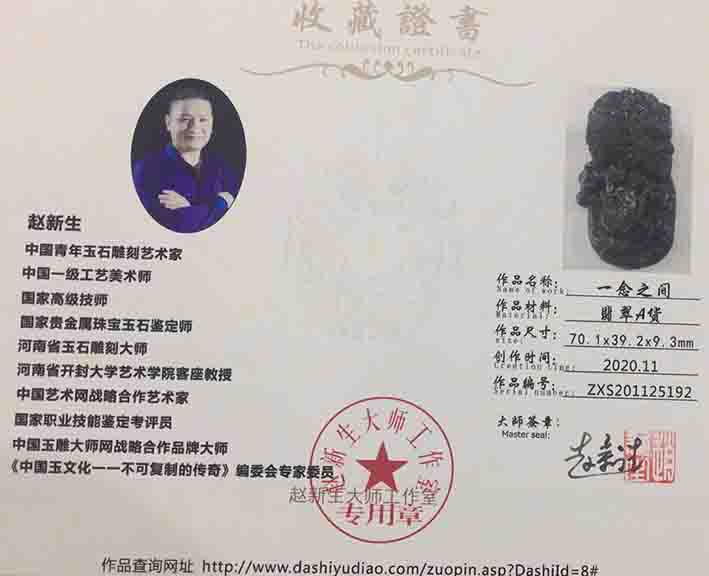 收藏證書
The collection certificate
赵新生
中国青年玉石雕刻艺术家
中国一级工艺美术师
国家高级技师
国家贵金属珠宝玉石鉴定师
河南省玉石雕刻大师
河南省开封大学艺术学院客座教授
中国艺术网战略合作艺术家
国家职业技能鉴定考评员
中国玉雕大师网战略合作品牌大师
《中国玉文化一一不可复制的传奇》编委会专家委员
作品名称: 一念之间
Name of work:
作品材料: 翡翠A货
Material:
作品尺寸: 70.1x39.2x9.3mm
size:
创作时间: 2020.11
Creation time:
作品编号: ZXS201125192
Serial number:
大師签章:
Master seal:
赵新生
赵新生大师工作室
专用章
赵新生大师工作室
作品查询网址 http://www.dashiyudiao.com/zuopin.asp?DashiId=8#